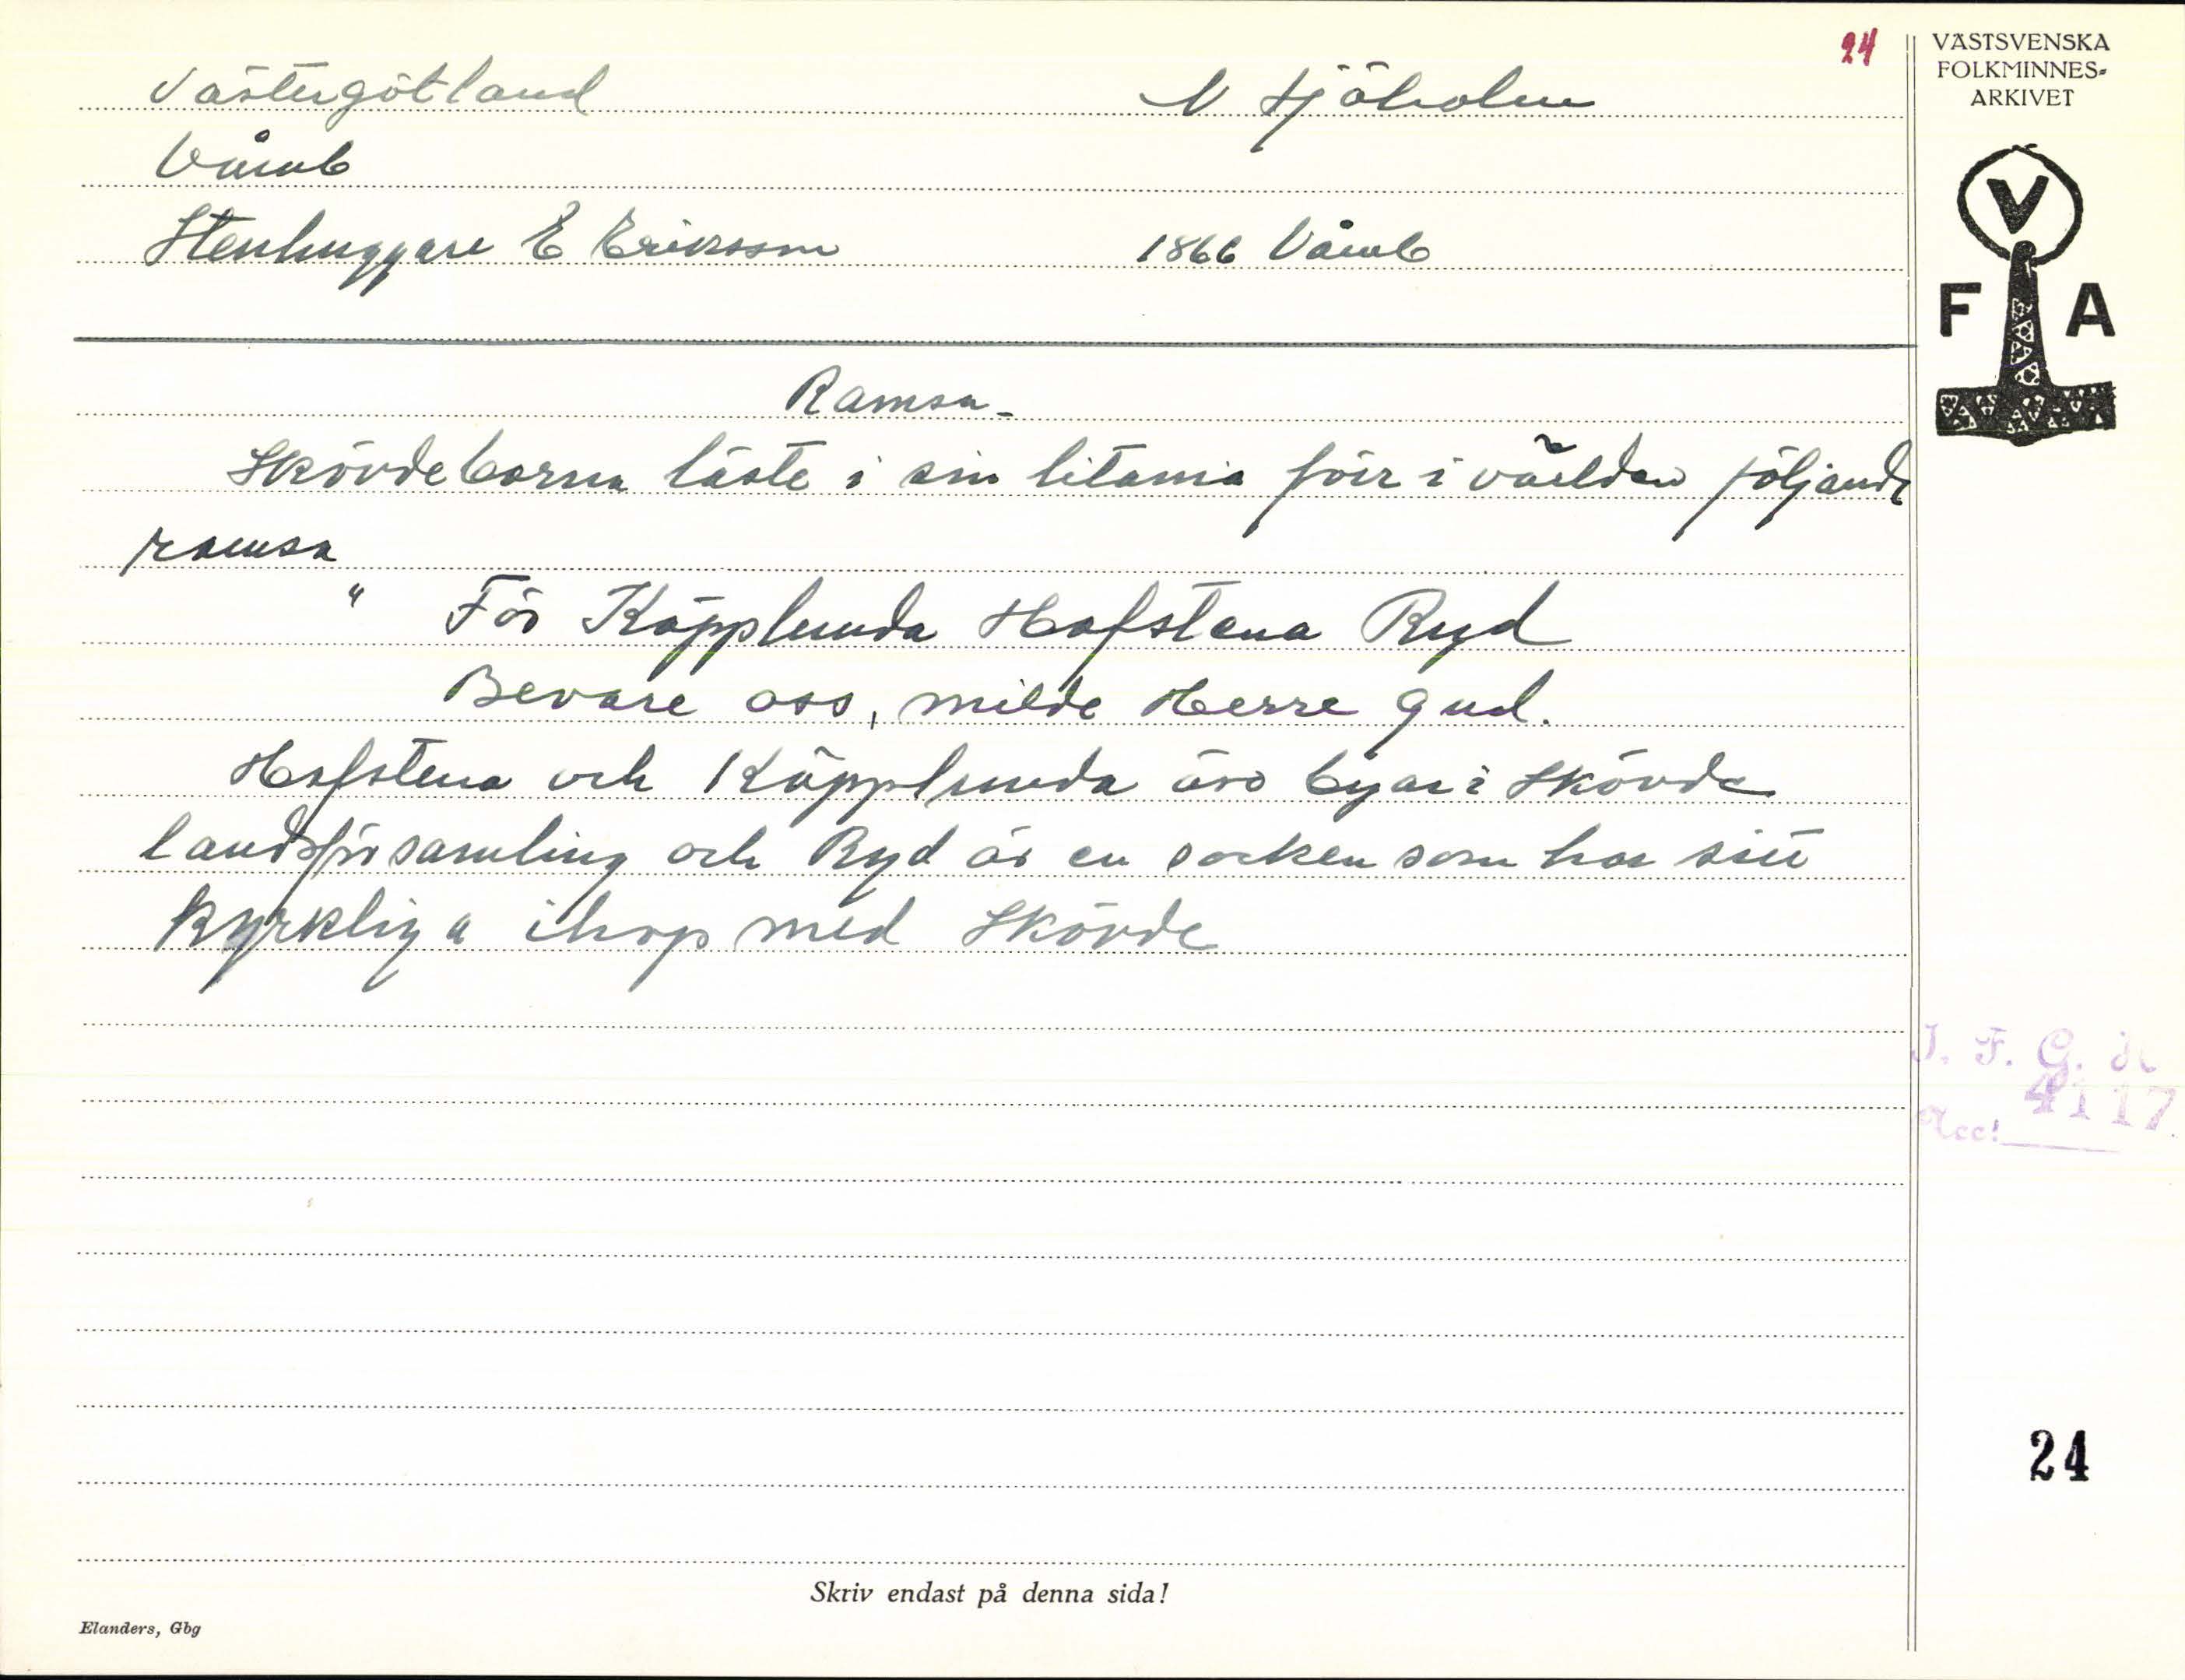 24
VÄSTSVENSKA
FOLKMINNES-
ARKIVET
V
F A
Västergötland N Sjöholm
Våmb
Stenhuggare E Eriksson 1866 Våmb
Ramsa.
Skövdeborna läste i sin litania förr i världen följande
ramsa
" För Käpplunda Hafstena Ryd
Bevare oss, milde Herre Gud.
Hafstena och Käpplunda äro byar i Skövde
landsförsamling och Ryd är en socken som har sitt
kyrkliga ihop med Skövde
I. F. G. H
4117
Acc!
24
Skriv endast på denna sida!
Elanders, Gbg